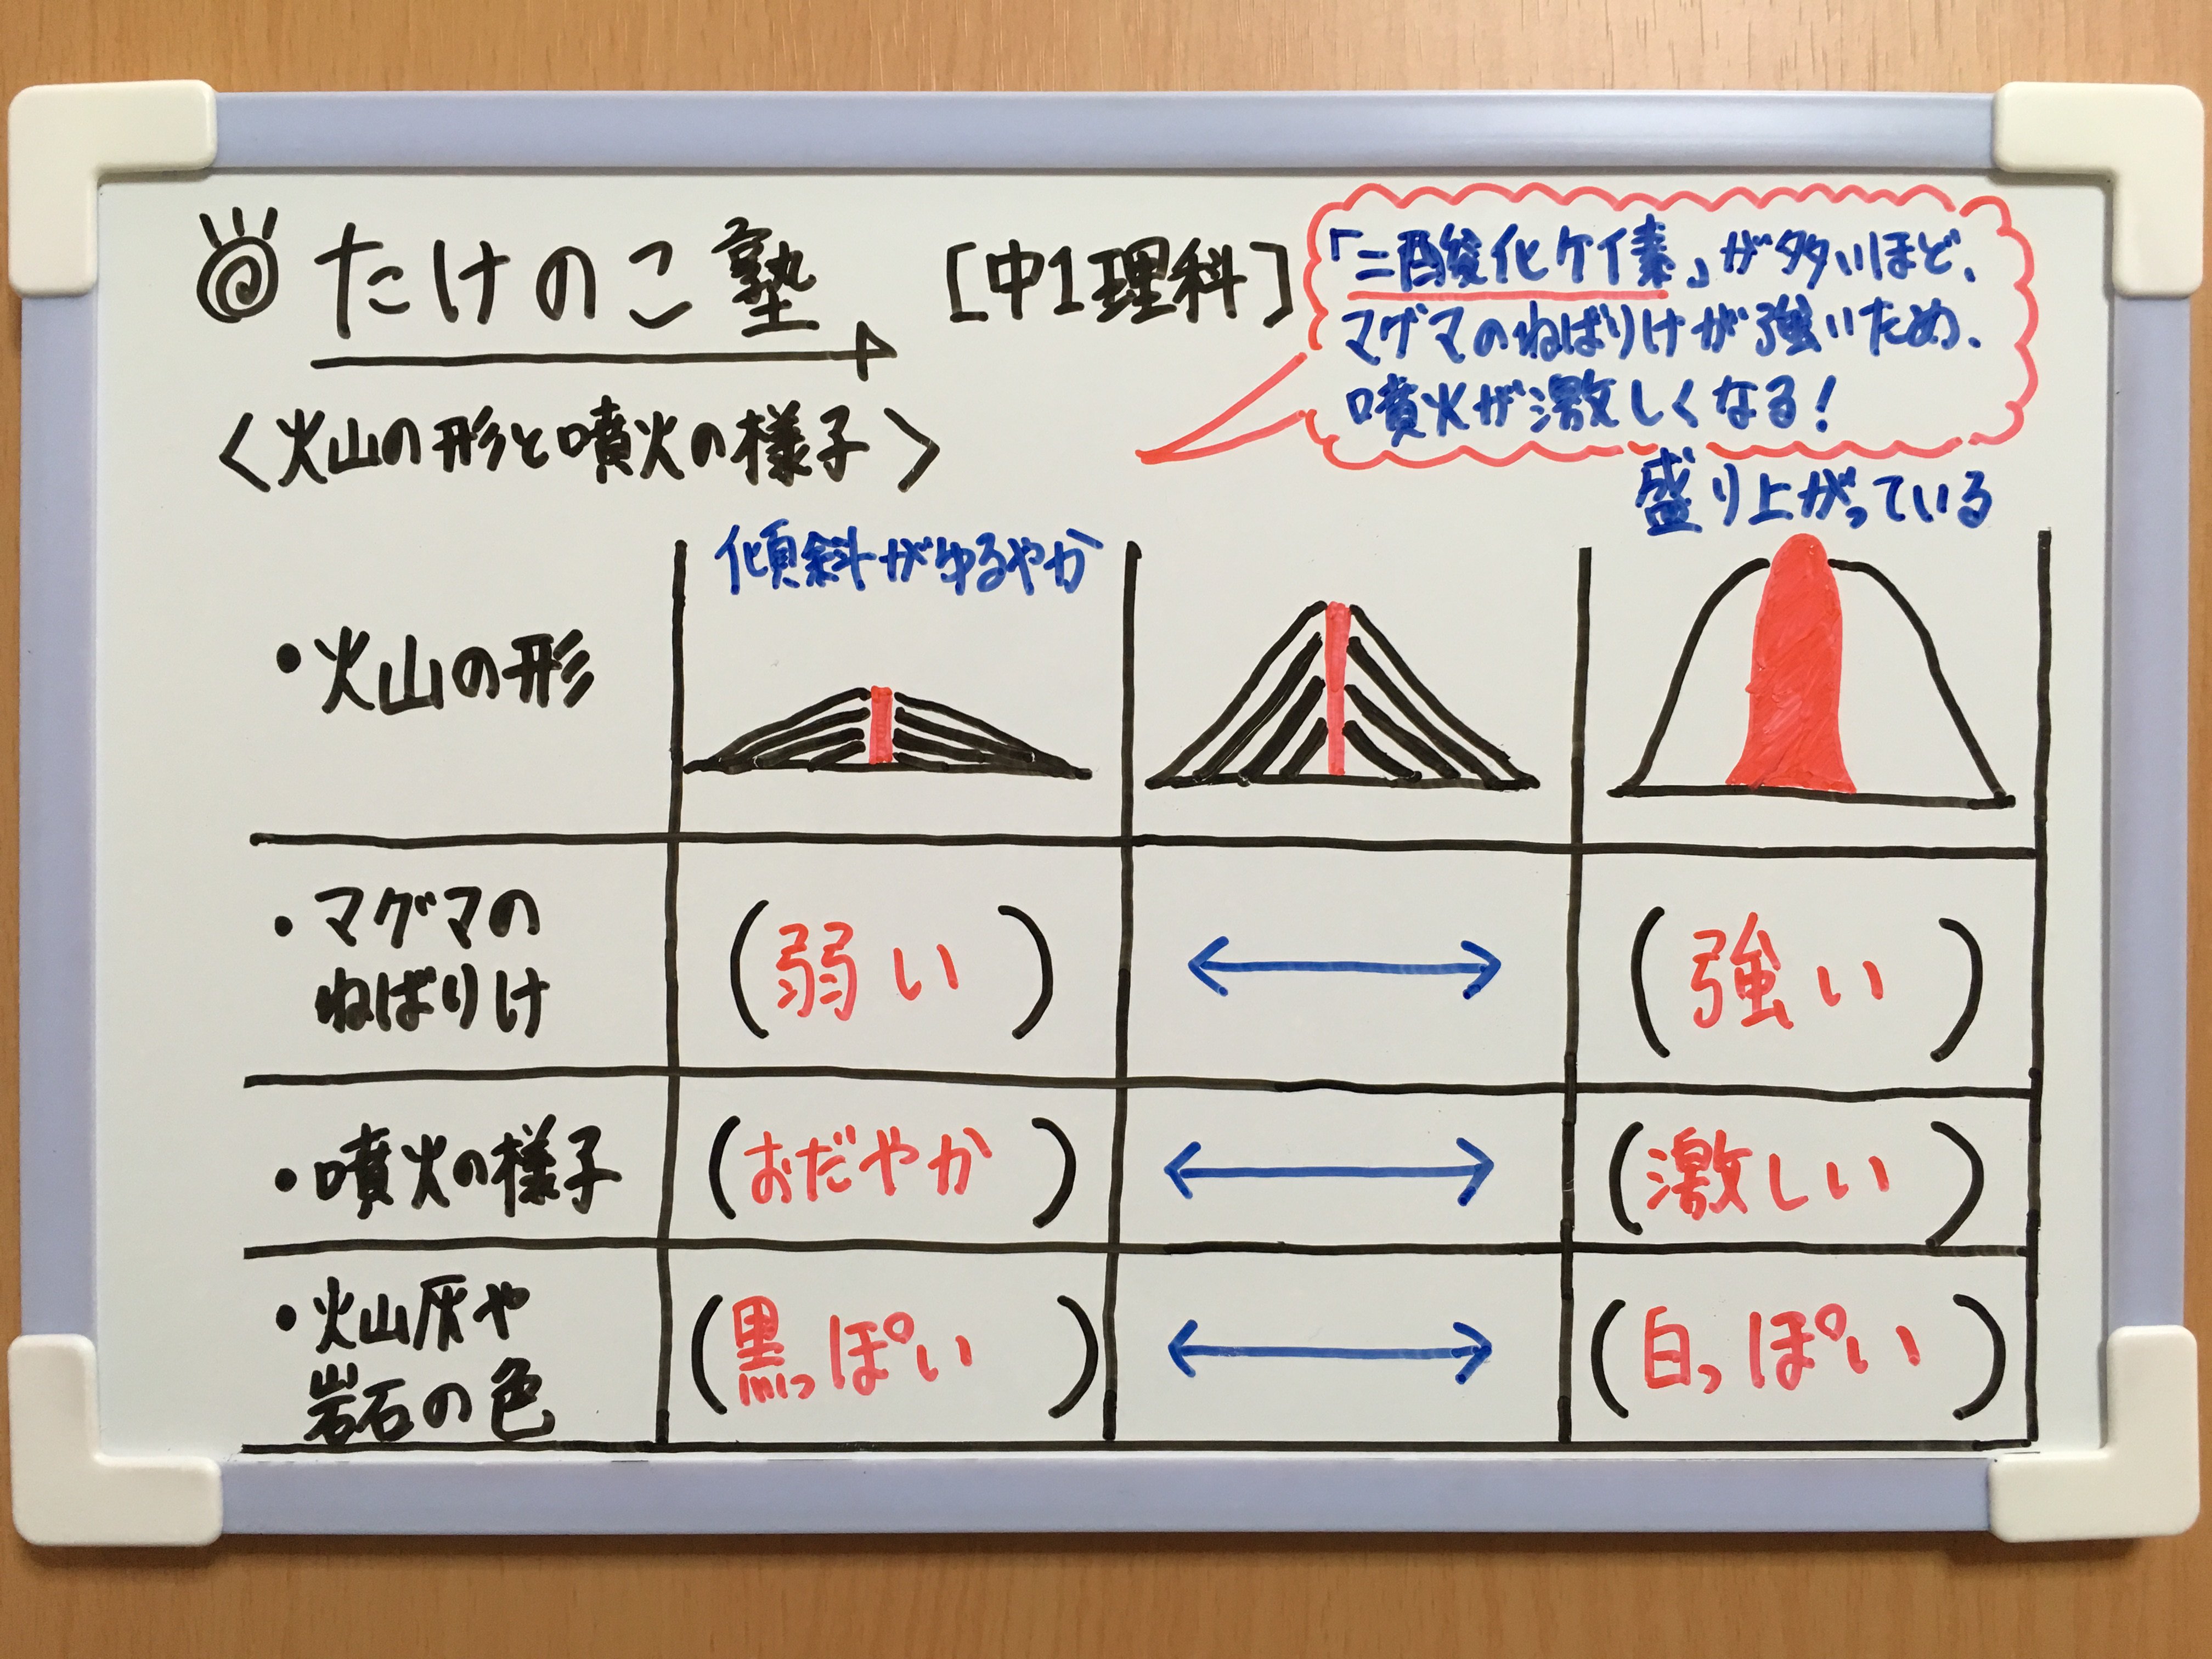 たけのこ塾 [中1理科]
「二酸化ケイ素」が多いほど、
マグマのねばりけが強いため、
噴火が激しくなる！
<火山の形と噴火の様子>
傾斜がゆるやか
盛り上がっている
・火山の形
・マグマの
ねばりけ
(弱い) (強い)
・噴火の様子 (おだやか) (激しい)
・火山灰や
岩石の色
(黒っぽい) (白っぽい)